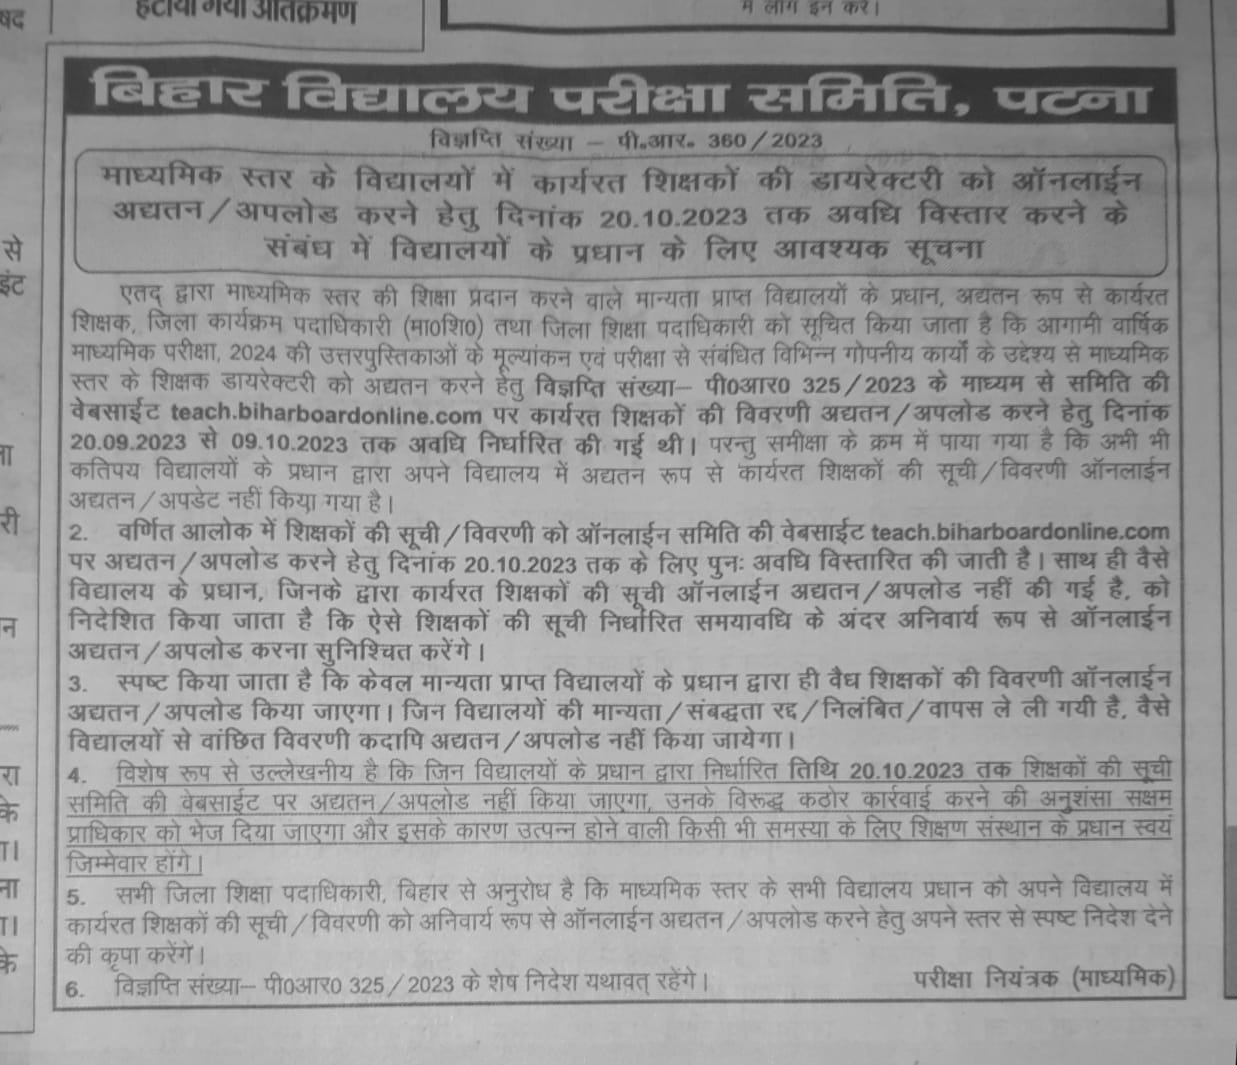 षद
हटाया गया अतिक्रमण
में लोग इन करें।
से
इंट
ना
री
न
रा
के
ना
के
बिहार विद्यालय परीक्षा समिति, पटना
विज्ञप्ति संख्या – पी॰आर॰ 360/2023
माध्यमिक स्तर के विद्यालयों में कार्यरत शिक्षकों की डायरेक्टरी को ऑनलाईन
अद्यतन/अपलोड करने हेतु दिनांक 20.10.2023 तक अवधि विस्तार करने के
संबंध में विद्यालयों के प्रधान के लिए आवश्यक सूचना
एतद् द्वारा माध्यमिक स्तर की शिक्षा प्रदान करने वाले मान्यता प्राप्त विद्यालयों के प्रधान, अद्यतन रूप से कार्यरत
शिक्षक, जिला कार्यक्रम पदाधिकारी (मा0शि0) तथा जिला शिक्षा पदाधिकारी को सूचित किया जाता है कि आगामी वार्षिक
माध्यमिक परीक्षा, 2024 की उत्तरपुस्तिकाओं के मूल्यांकन एवं परीक्षा से संबंधित विभिन्न गोपनीय कार्यों के उद्देश्य से माध्यमिक
स्तर के शिक्षक डायरेक्टरी को अद्यतन करने हेतु विज्ञप्ति संख्या– पी0आर0 325/2023 के माध्यम से समिति की
वेबसाईट teach.biharboardonline.com पर कार्यरत शिक्षकों की विवरणी अद्यतन/अपलोड करने हेतु दिनांक
20.09.2023 से 09.10.2023 तक अवधि निर्धारित की गई थी। परन्तु समीक्षा के क्रम में पाया गया है कि अभी भी
कतिपय विद्यालयों के प्रधान द्वारा अपने विद्यालय में अद्यतन रूप से कार्यरत शिक्षकों की सूची/विवरणी ऑनलाईन
अद्यतन/अपडेट नहीं किया गया है।
2. वर्णित आलोक में शिक्षकों की सूची/विवरणी को ऑनलाईन समिति की वेबसाईट teach.biharboardonline.com
पर अद्यतन/अपलोड करने हेतु दिनांक 20.10.2023 तक के लिए पुनः अवधि विस्तारित की जाती है। साथ ही वैसे
विद्यालय के प्रधान, जिनके द्वारा कार्यरत शिक्षकों की सूची ऑनलाईन अद्यतन/अपलोड नहीं की गई है, को
निदेशित किया जाता है कि ऐसे शिक्षकों की सूची निर्धारित समयावधि के अंदर अनिवार्य रूप से ऑनलाईन
अद्यतन/अपलोड करना सुनिश्चित करेंगे।
3. स्पष्ट किया जाता है कि केवल मान्यता प्राप्त विद्यालयों के प्रधान द्वारा ही वैध शिक्षकों की विवरणी ऑनलाईन
अद्यतन/अपलोड किया जाएगा। जिन विद्यालयों की मान्यता/संबद्धता रद्द/निलंबित/वापस ले ली गयी है, वैसे
विद्यालयों से वांछित विवरणी कदापि अद्यतन/अपलोड नहीं किया जायेगा।
4. विशेष रूप से उल्लेखनीय है कि जिन विद्यालयों के प्रधान द्वारा निर्धारित तिथि 20.10.2023 तक शिक्षकों की सूची
समिति की वेबसाईट पर अद्यतन/अपलोड नहीं किया जाएगा, उनके विरूद्ध कठोर कार्रवाई करने की अनुशंसा सक्षम
प्राधिकार को भेज दिया जाएगा और इसके कारण उत्पन्न होने वाली किसी भी समस्या के लिए शिक्षण संस्थान के प्रधान स्वयं
जिम्मेवार होंगे।
5. सभी जिला शिक्षा पदाधिकारी, बिहार से अनुरोध है कि माध्यमिक स्तर के सभी विद्यालय प्रधान को अपने विद्यालय में
कार्यरत शिक्षकों की सूची/विवरणी को अनिवार्य रूप से ऑनलाईन अद्यतन/अपलोड करने हेतु अपने स्तर से स्पष्ट निदेश देने
की कृपा करेंगें।
6. विज्ञप्ति संख्या– पी0आर0 325/2023 के शेष निदेश यथावत् रहेंगे। परीक्षा नियंत्रक (माध्यमिक)